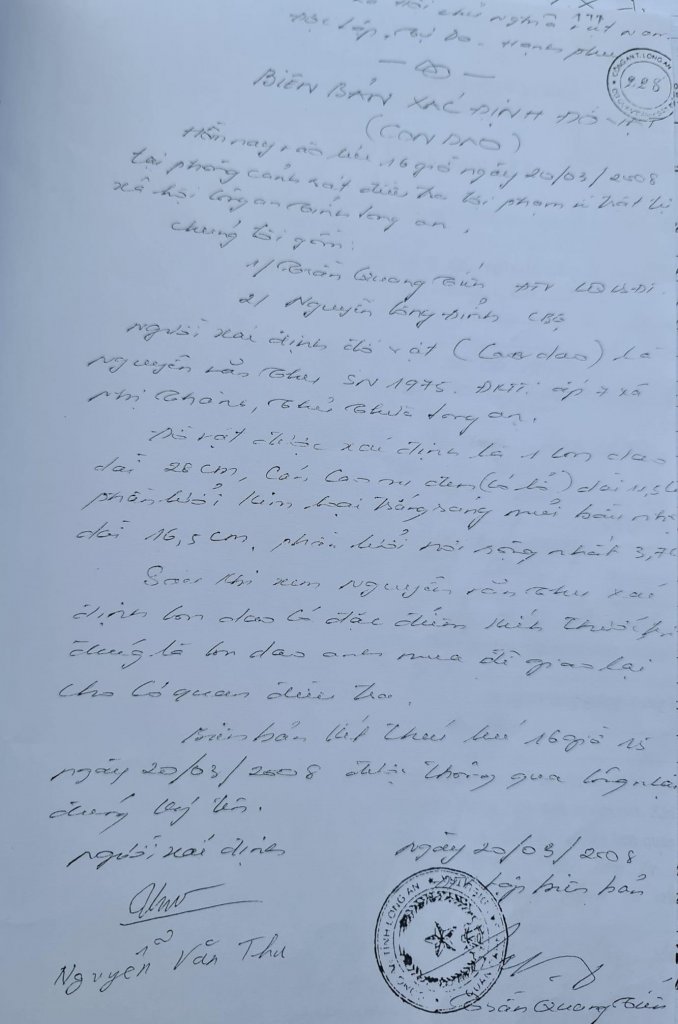 xã hội chủ nghĩa Việt Nam
Độc lập, Tự Do, Hạnh phúc
CÔNG AN T. LONG AN
928
BIÊN BẢN XÁC ĐỊNH ĐỒ VẬT
(CON DAO)
Hôm nay vào lúc 16 giờ ngày 20/03/2008
tại phòng cảnh sát điều tra tội phạm về trật tự
xã hội công an tỉnh long an.
Chúng tôi gồm:
1/ Trần Quang Tiến ĐTV
2/ Nguyễn Công Định CBộ
người xác định đồ vật (Con dao) là
Nguyễn Văn Thu SN 1975. ĐKTT: ấp 7 xã
Nhị Thành, Thủ Thừa long an.
Đồ vật được xác định là 1 con dao
dài 28 cm, Cán Cao su đen (có lổ) dài 11,5
phần lưởi kim loại trắng sáng mủi bầu
dài 16,5 cm, phần lưởi nơi rộng nhất 3,7
Sau khi xem Nguyễn Văn Thu xác
định con dao có đặc điểm kích thước
đúng là con dao anh mua để giao lại
cho Cơ quan điều tra.
Biên bản kết thúc lúc 16 giờ 15
ngày 20/03/2008 được thông qua công nhận
đúng ký tên.
người xác định
ngày 20/03/2008
lập biên bản
TỈNH LONG AN
Nguyễn Văn Thu
Trần Quang Tiến